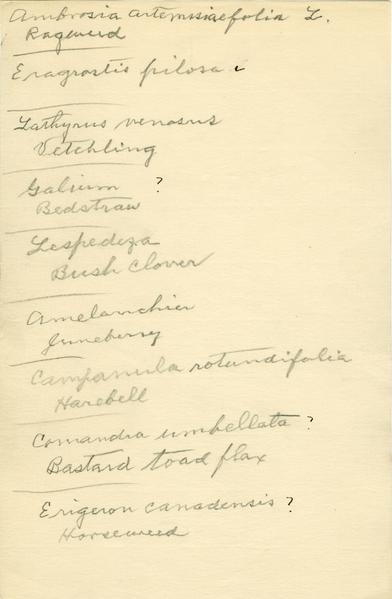 Ambrosia artemisiaefolia L.
Ragweed
Eragrostis pilosa
Lathyrus venosus
Vetchling
Galium ?
Bedstraw
Lespedeza
Bush Clover
Amelanchier
Juneberry
Campanula rotundifolia
Harebell
Comandra umbellata ?
Bastard toad flax
Erigeron canadensis ?
Horseweed